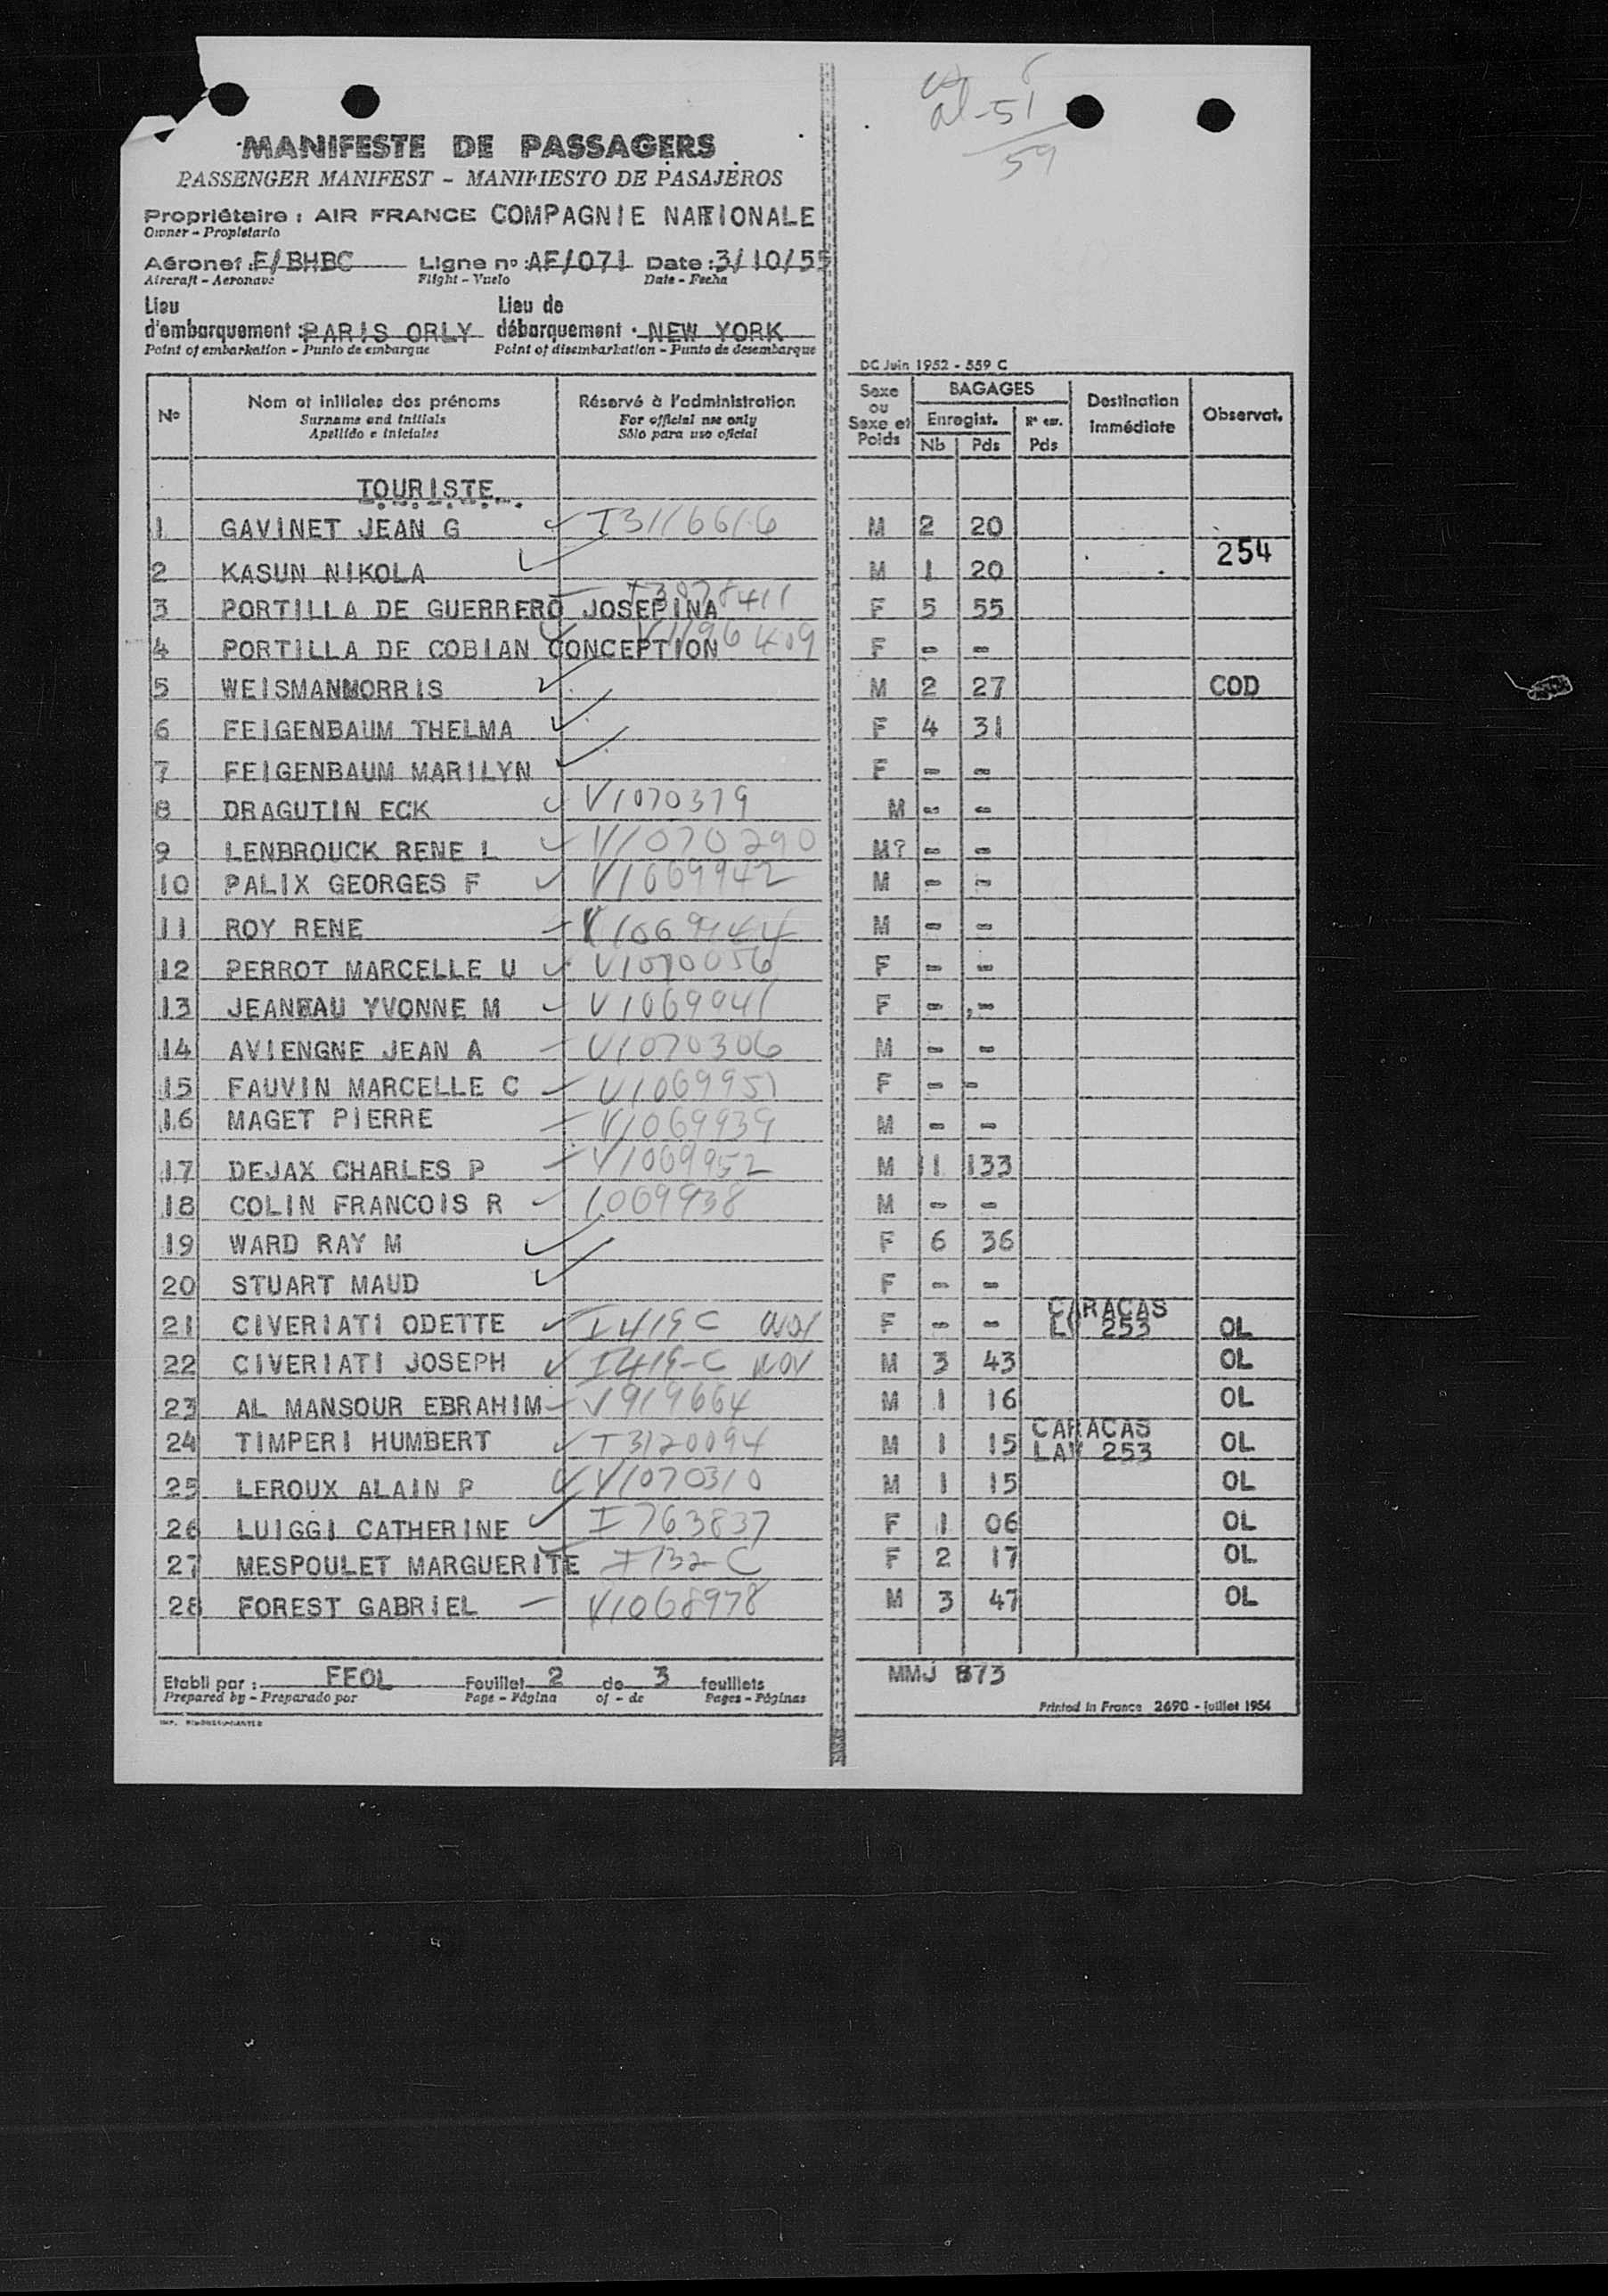 al-51
59
MANIFESTE DE PASSAGERS
PASSENGER MANIFEST - MANIFIESTO DE PASAJEROS
Propriétaire : AIR FRANCE COMPAGNIE NATIONALE
Owner - Propietario
Aéronef : F/BHBC Ligne nº : AF/071 Date : 3/10/55
Aircraft - Aeronave Flight - Vuelo Date - Fecha
Lieu d'embarquement : PARIS ORLY Lieu de débarquement : NEW YORK
Point of embarkation - Punto de embarque Point of disembarkation - Punto de desembarque
DC Juin 1952 - 559 C
Nº Nom et initiales des prénoms Réservé à l'administration Sexe ou Sexe et Poids BAGAGES Destination immédiate Observat.
Surname and initials For official use only Enregist. Nº enr.
Apellido e iniciales Sólo para uso oficial Nb Pds Pds
TOURISTE
1 GAVINET JEAN G I3116616 M 2 20
2 KASUN NIKOLA M 1 20 254
3 PORTILLA DE GUERRERO JOSEFINA F 5 55
4 PORTILLA DE COBIAN CONCEPTION F - -
5 WEISMANMORRIS M 2 27 COD
6 FEIGENBAUM THELMA F 4 31
7 FEIGENBAUM MARILYN F - -
8 DRAGUTIN ECK V1070379 M - -
9 LENBROUCK RENE L V1070290 M? - -
10 PALIX GEORGES F V1069942 M - -
11 ROY RENE M - -
12 PERROT MARCELLE U V1070056 F - -
13 JEANEAU YVONNE M V1069941 F - -
14 AVIENGNE JEAN A V1070306 M - -
15 FAUVIN MARCELLE C V1069951 F - -
16 MAGET PIERRE V1069939 M - -
17 DEJAX CHARLES P V1069952 M 11 133
18 COLIN FRANCOIS R 1069938 M - -
19 WARD RAY M F 6 36
20 STUART MAUD F - -
21 CIVERIATI ODETTE I419C F - - CARACAS 253 OL
22 CIVERIATI JOSEPH I419-C M 3 43 OL
23 AL MANSOUR EBRAHIM V919664 M 1 16 OL
24 TIMPERI HUMBERT I3120094 M 1 15 CARACAS LAV 253 OL
25 LEROUX ALAIN P V1070310 M 1 15 OL
26 LUIGGI CATHERINE I763837 F 1 06 OL
27 MESPOULET MARGUERITE I132-C F 2 17 OL
28 FOREST GABRIEL V1068978 M 3 47 OL
Etabli par : FEOL Feuillet 2 de 3 feuillets MMJ 873
Prepared by - Preparado por Page - Página of - de Pages - Páginas
Printed in France 2690 - Juillet 1954